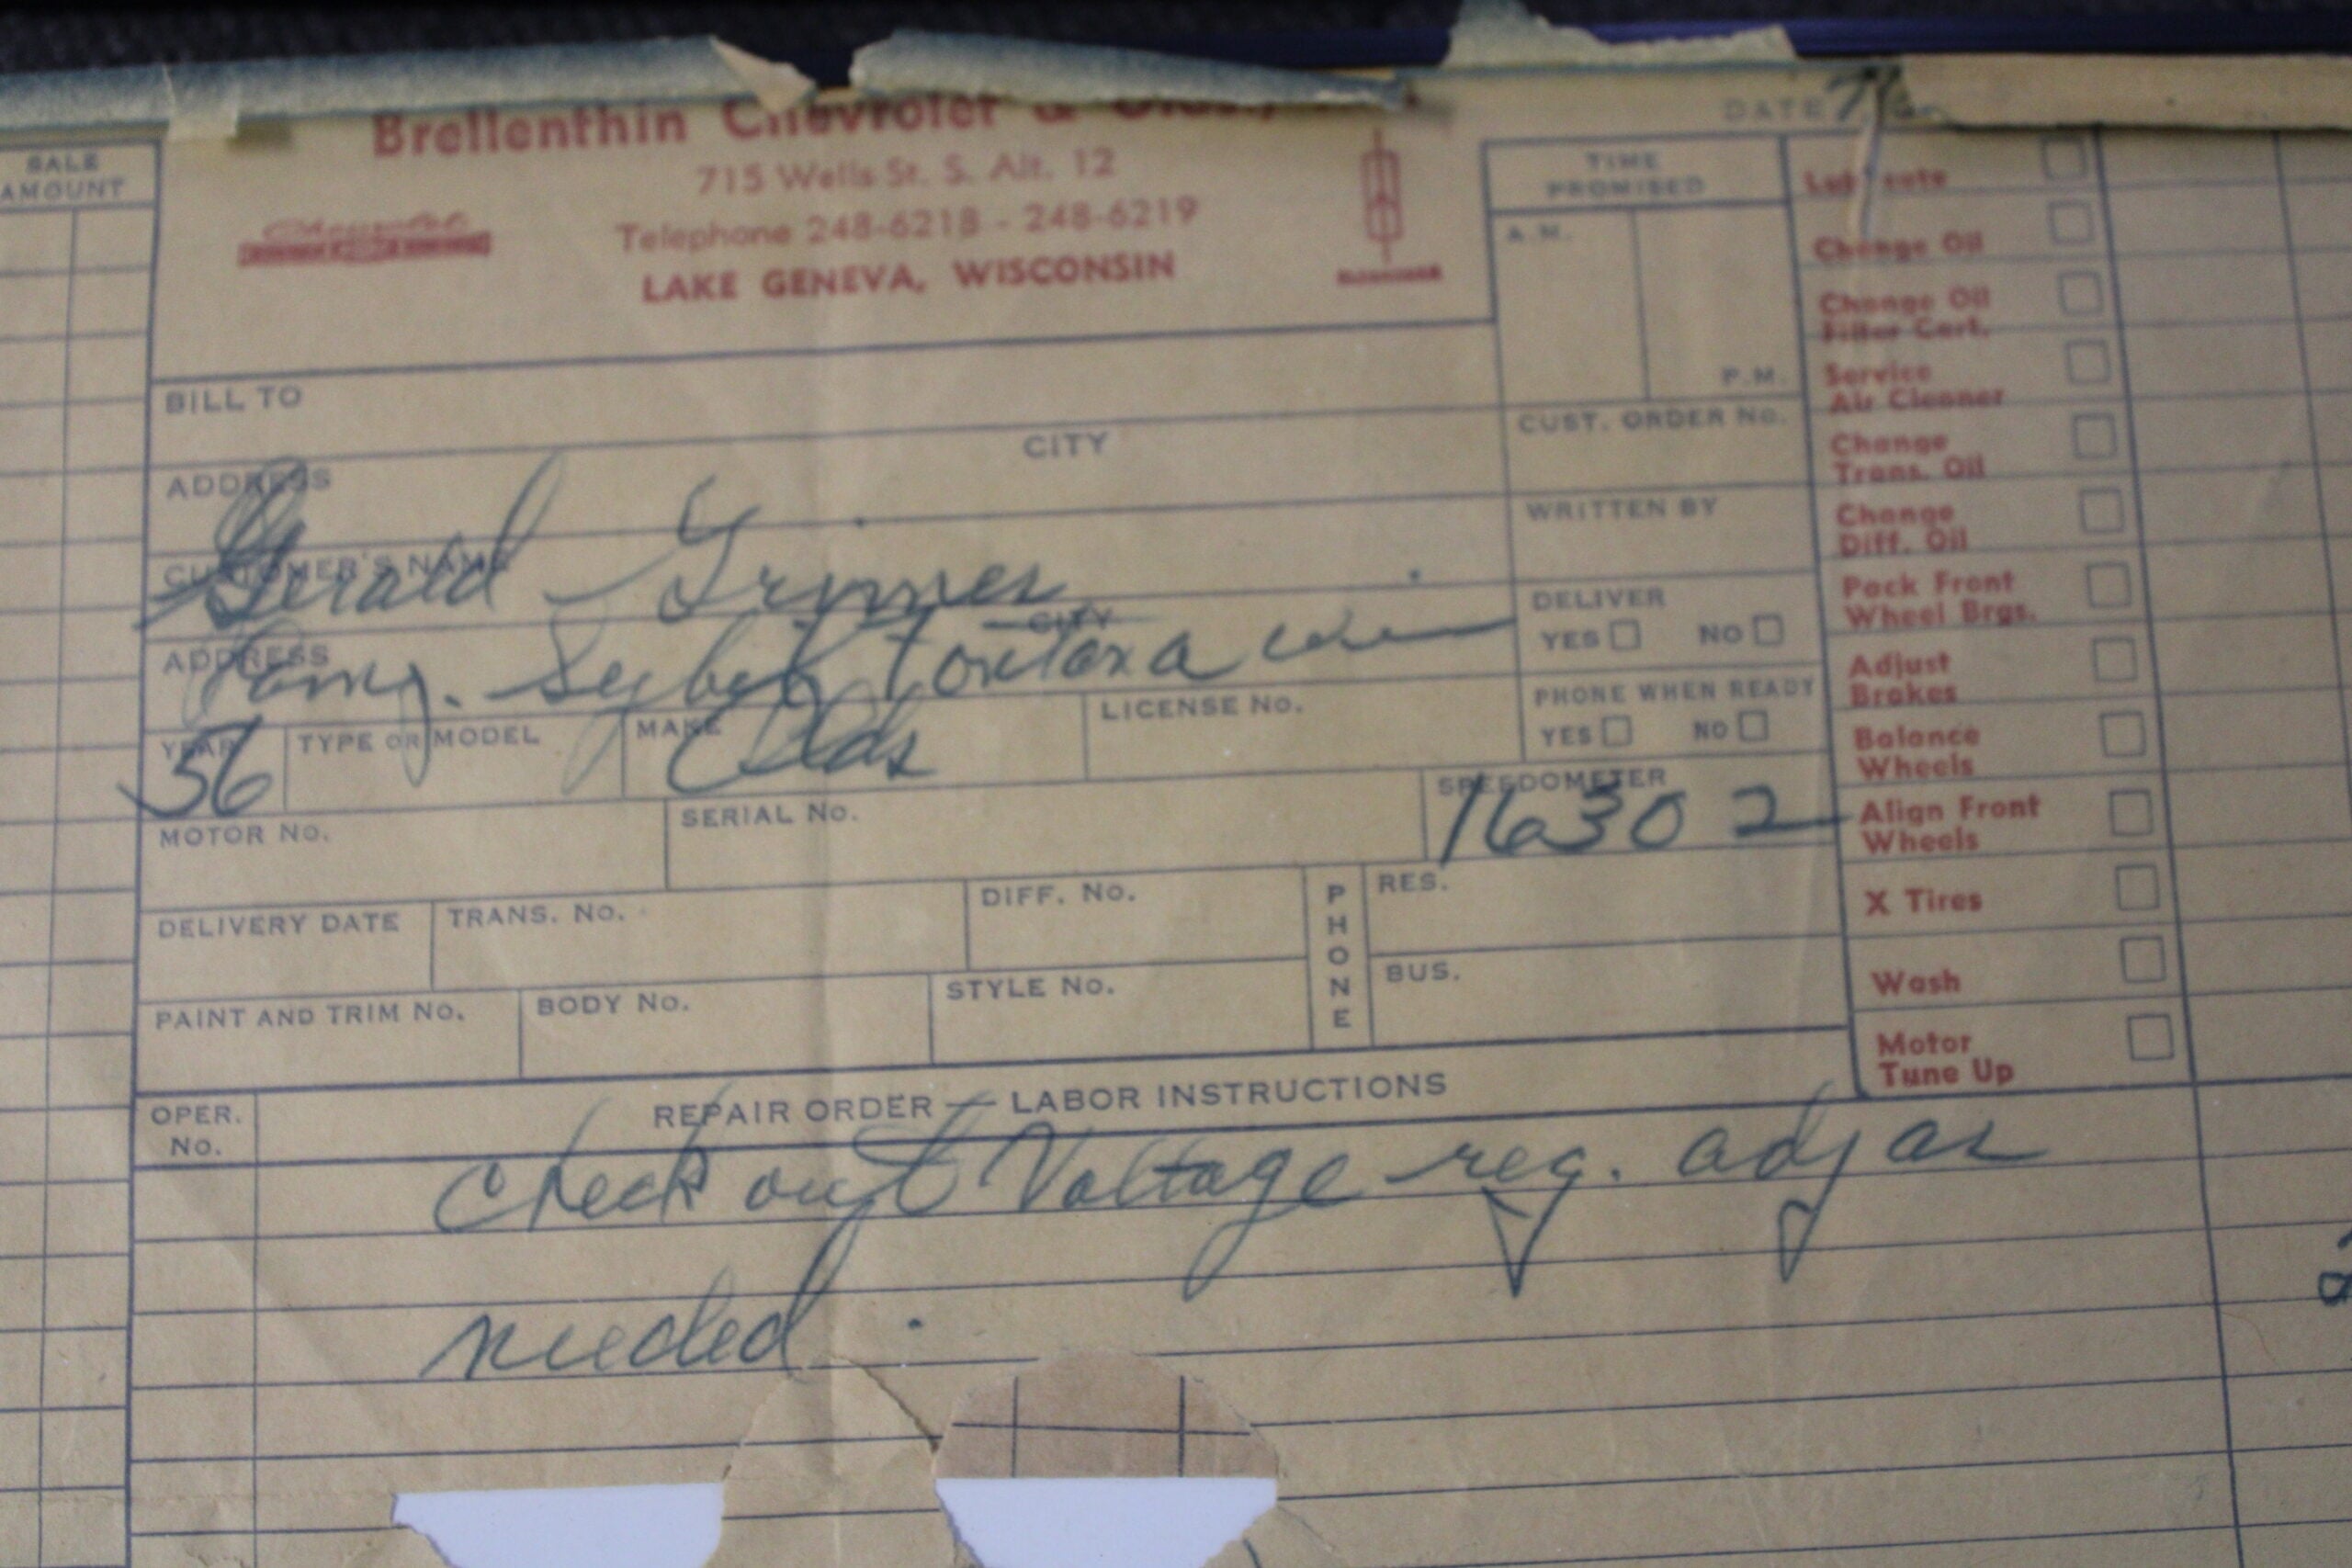 Brellenthin Chevrolet & Olds,
715 Wells St. S. Alt. 12
Telephone 248-6218 - 248-6219
LAKE GENEVA, WISCONSIN
Chevrolet
DATE
SALE
AMOUNT
TIME
PROMISED
A.M.
P.M.
BILL TO
ADDRESS
CITY
CUST. ORDER No.
WRITTEN BY
CUSTOMER'S NAME
Gerald Grimes
ADDRESS
CITY
Fontana
DELIVER
YES NO
PHONE WHEN READY
YES NO
YEAR
56
TYPE OR MODEL
MAKE
Olds
LICENSE No.
MOTOR No.
SERIAL No.
SPEEDOMETER
16302
DELIVERY DATE
TRANS. No.
DIFF. No.
PHONE
RES.
BUS.
PAINT AND TRIM No.
BODY No.
STYLE No.
Lubricate
Change Oil
Change Oil
Filter Cart.
Service
Air Cleaner
Change
Trans. Oil
Change
Diff. Oil
Pack Front
Wheel Brgs.
Adjust
Brakes
Balance
Wheels
Align Front
Wheels
X Tires
Wash
Motor
Tune Up
OPER.
No.
REPAIR ORDER — LABOR INSTRUCTIONS
Check out Voltage reg. adj as
needed.